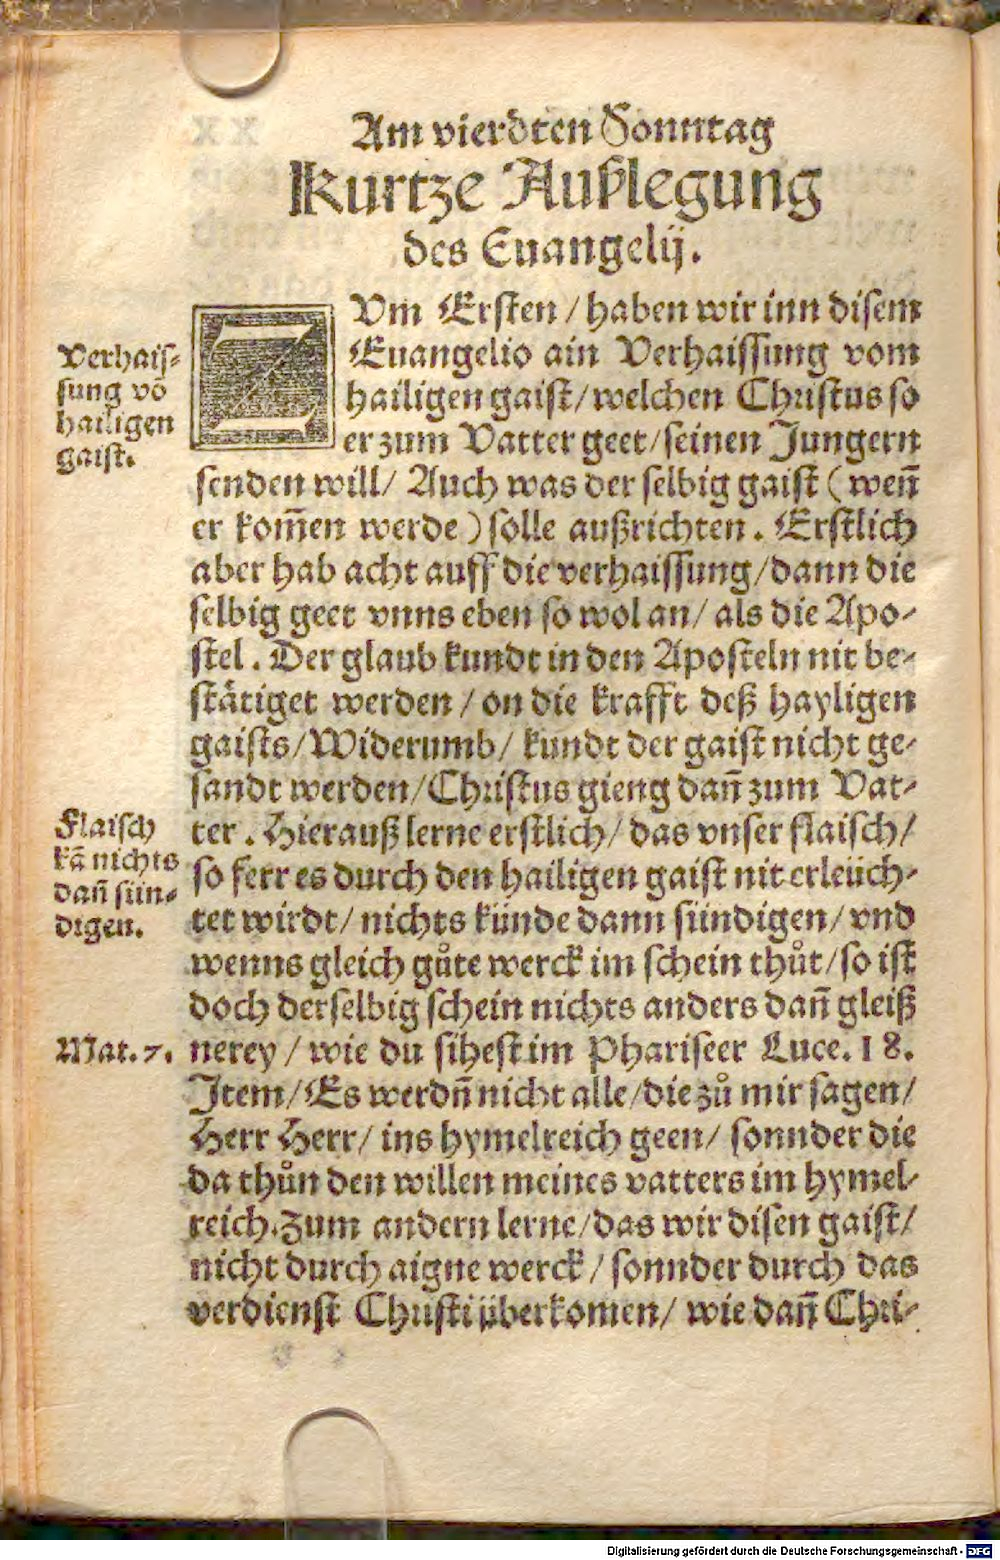 Am vierdten Sonntag
Kurtze Außlegung
des Euangelij.
ZVm Ersten / haben wir inn disem
Euangelio ain Verhaissung vom
hailigen gaist / welchen Christus so
er zum Vatter geet / seinen Jungern
senden will / Auch was der selbig gaist ( weñ
er kom̃en werde ) solle außrichten . Erstlich
aber hab acht auff die verhaissung / dann die
selbig geet vnns eben so wol an / als die Apo-
stel . Der glaub kundt in den Aposteln nit be-
stätiget werden / on die krafft deß hayligen
gaists / Widerumb / kundt der gaist nicht ge-
sandt werden / Christus gieng dañ zum Vat-
ter . Hierauß lerne erstlich / das vnser flaisch /
so ferr es durch den hailigen gaist nit erleüch-
tet wirdt / nichts künde dann sündigen / vnd
wenns gleich gůte werck im schein thůt / so ist
doch derselbig schein nichts anders dañ gleiß
nerey / wie du sihest im Phariseer Luce. 18.
Item / Es werdñ nicht alle / die zů mir sagen /
Herr Herr / ins hymelreich geen / sonnder die
da thůn den willen meines vatters im hymel-
reich. Zum andern lerne / das wir disen gaist /
nicht durch aigne werck / sonnder durch das
verdienst Christi überkomen / wie dañ Chri-
Verhais-
sung võ
hailigen
gaist.
Flaisch
kã nichts
dañ sün-
digen.
Mat. 7.
Digitalisierung gefördert durch die Deutsche Forschungsgemeinschaft - DFG